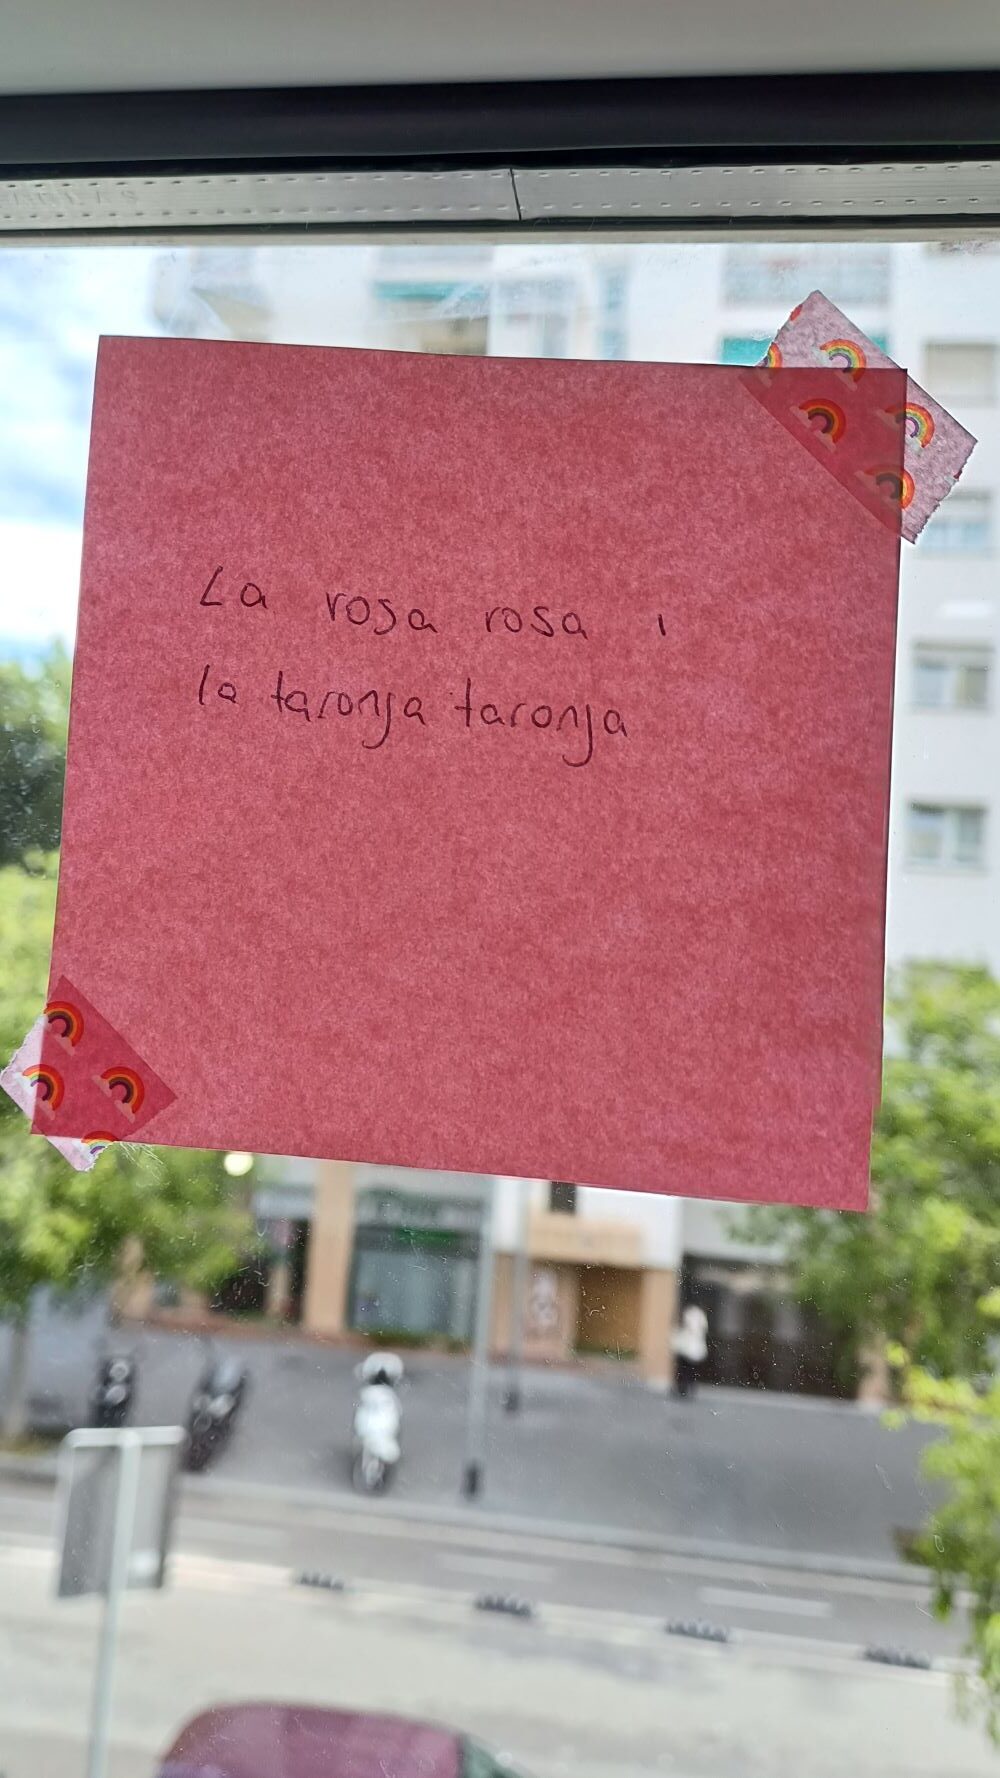 La rosa rosa i
la taronja taronja